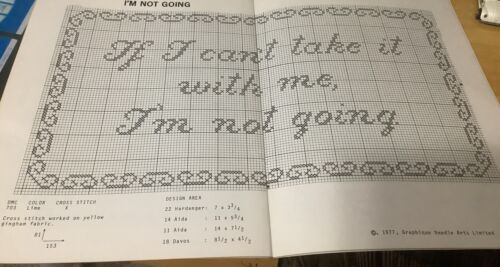 I'M NOT GOING
If I can't take it
with me,
I'm not going
DMC COLOR CROSS STITCH
703 Lime X
Cross stitch worked on yellow
gingham fabric.
81
153
DESIGN AREA
22 Hardanger: 7 x 3 3/4
14 Aida : 11 x 5 3/4
11 Aida : 14 x 7 1/2
18 Davos : 8 1/2 x 4 1/2
© 1977, Graphique Needle Arts Limited